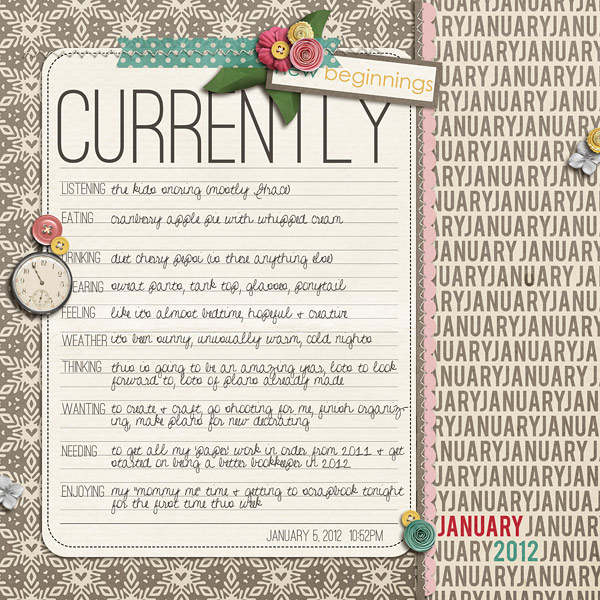 new beginnings
CURRENTLY
LISTENING the kids snoring (mostly Grace)
EATING cranberry apple pie with whipped cream
DRINKING diet cherry pepsi (is there anything else)
WEARING sweat pants, tank top, glasses, ponytail
FEELING like its almost bedtime, hopeful & creative
WEATHER its been sunny, unusually warm, cold nights
THINKING this is going to be an amazing year, lots to look
forward to, lots of plans already made
WANTING to create & craft, go shooting for me, finish organiz-
ing, make plans for new decorating
NEEDING to get all my paper work in order from 2011 & get
started on being a better bookkeeper in 2012
ENJOYING my "mommy me" time & getting to scrapbook tonight
for the first time this week
JANUARY 5, 2012 10:52PM
JANUARY JANUARY JANUARY
JANUARY
2012